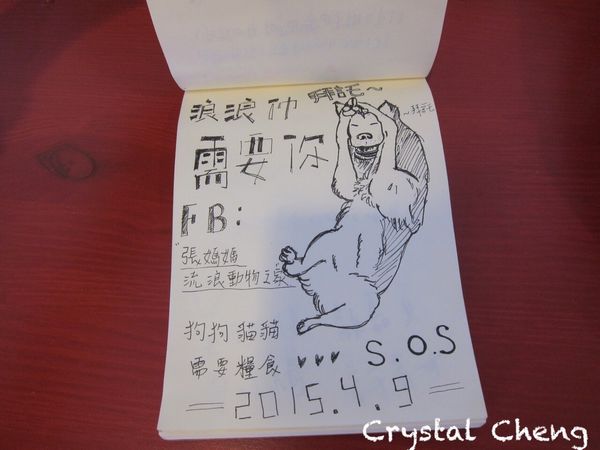 拜託~
浪浪仲
~拜託
需要你
FB:
"張媽媽
流浪動物之家"
狗狗貓貓
需要糧食 ♥♥♥ S.O.S
=2015.4.9=
Crystal Cheng